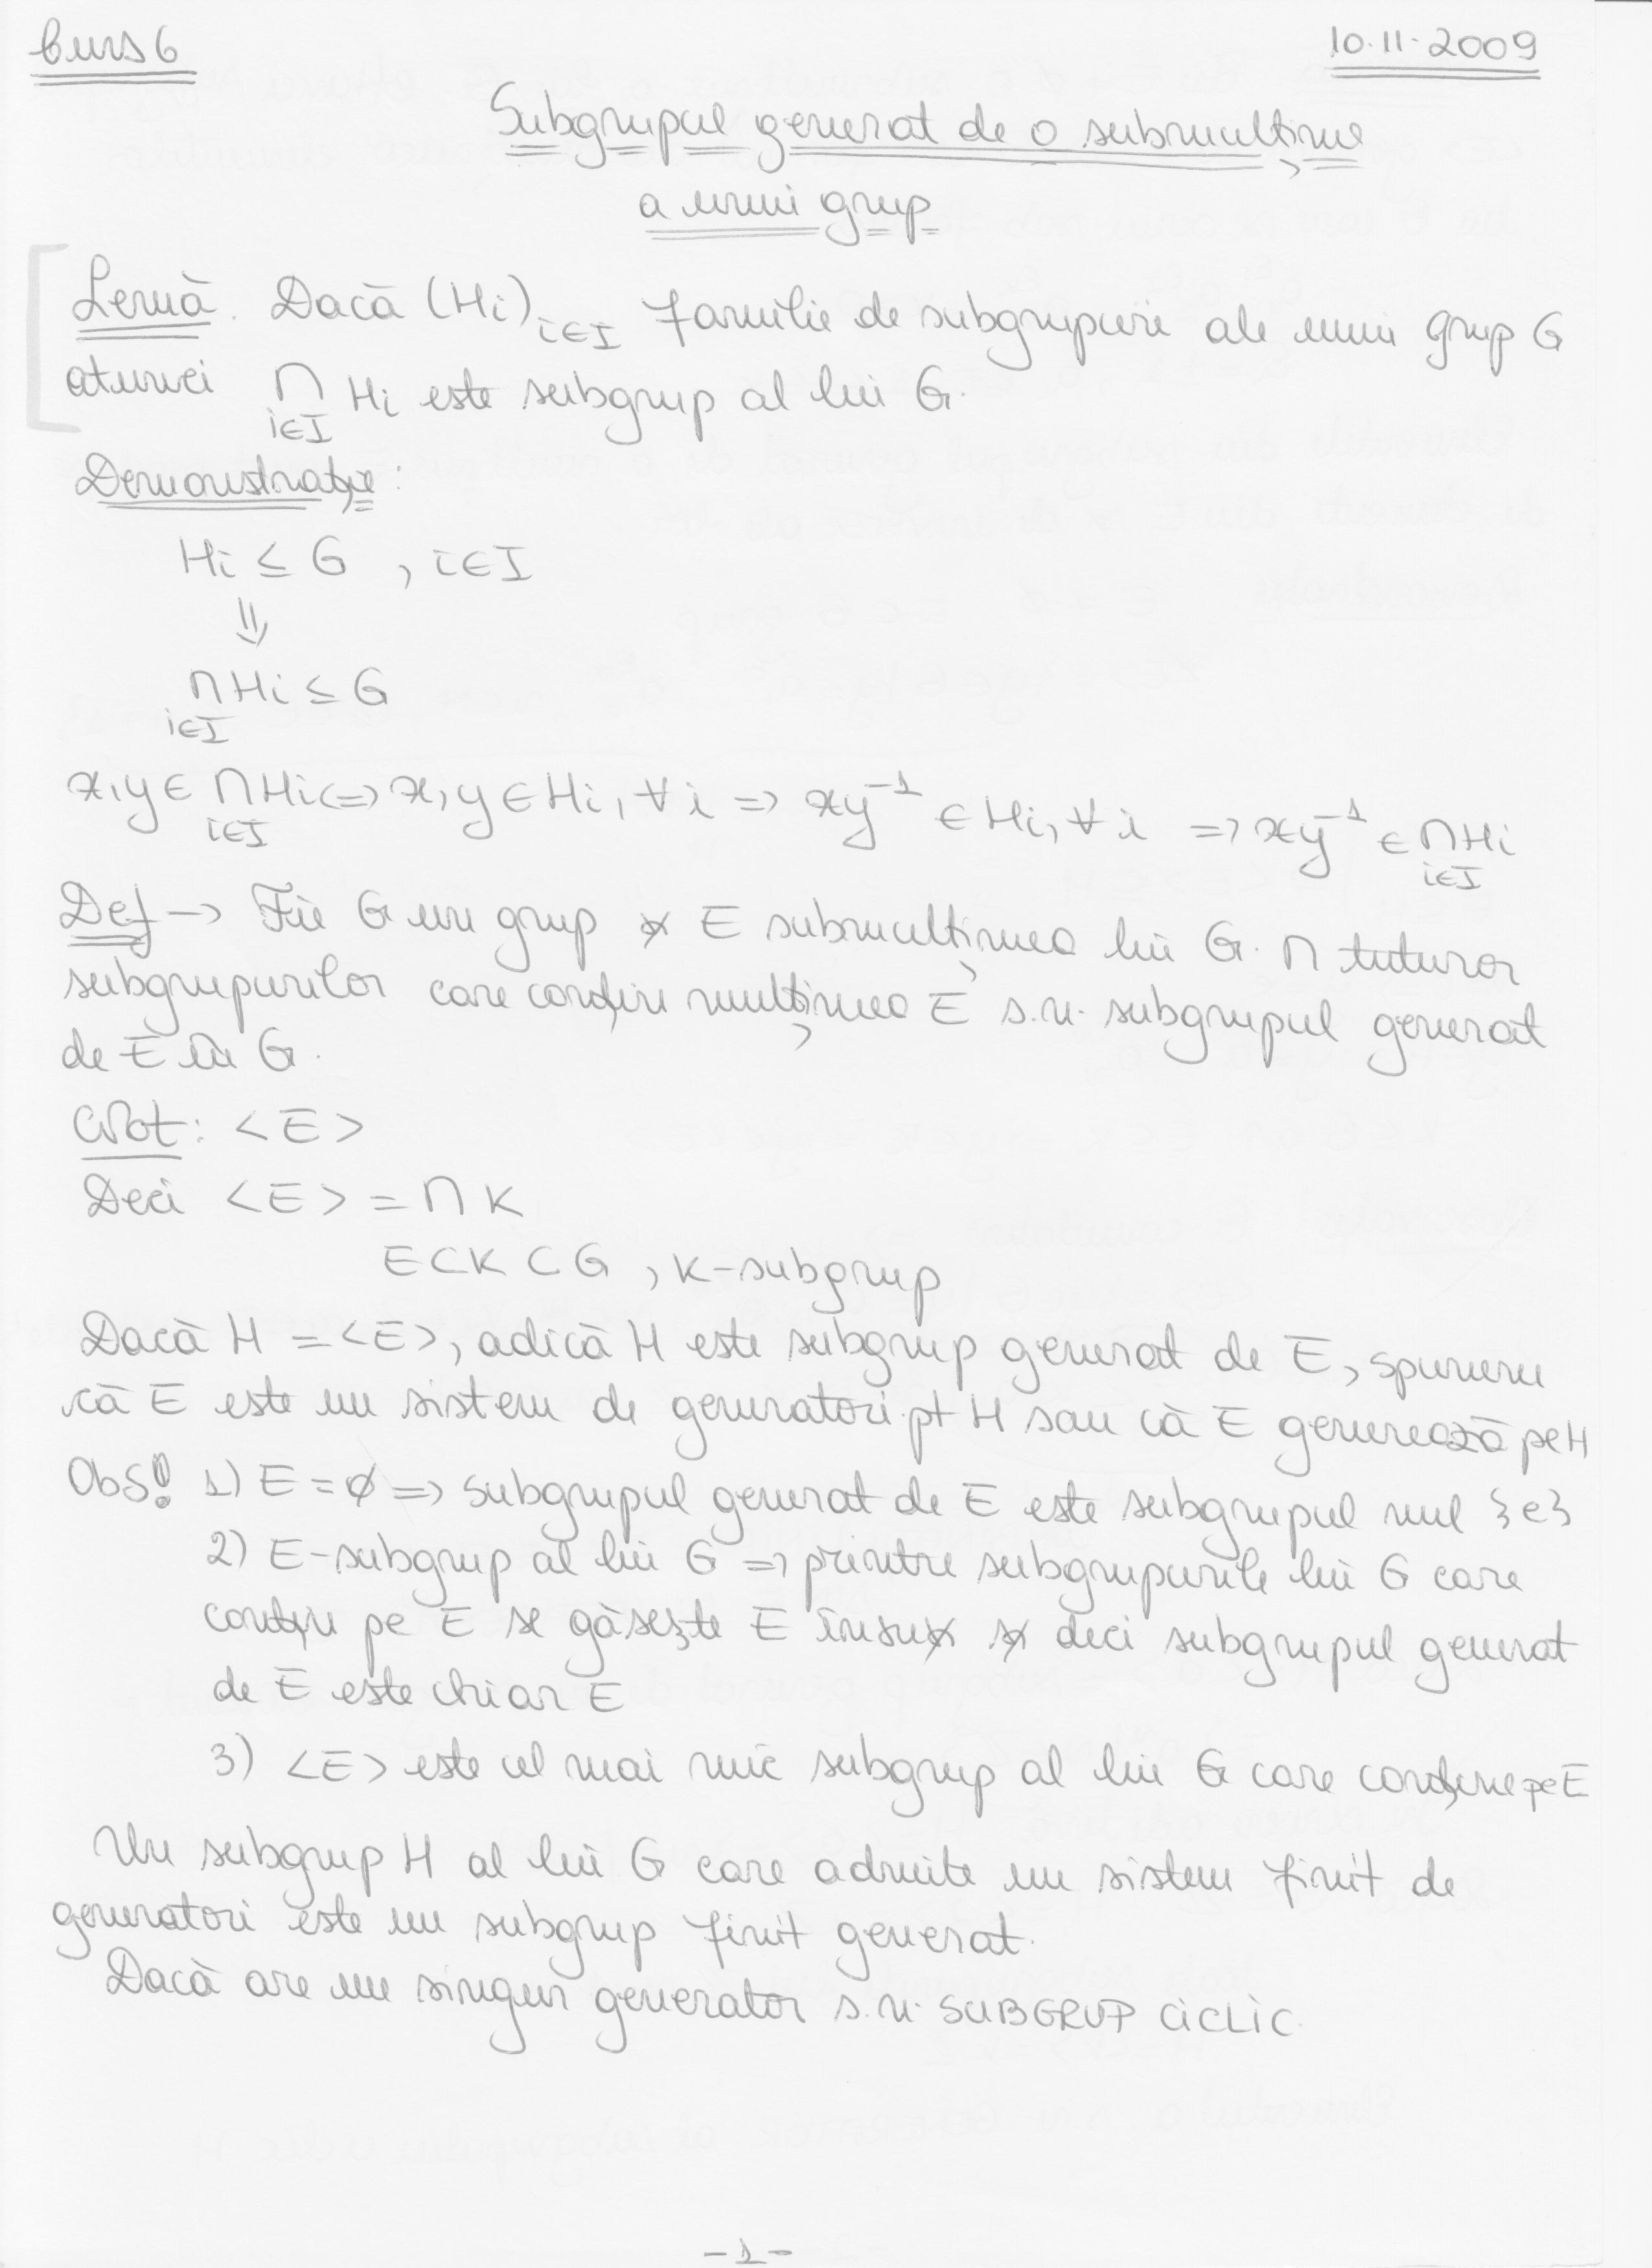 Curs 6
10.11.2009
Subgrupul generat de o submulțime
a unui grup
Lemă. Dacă (Hi)i∈I familie de subgrupuri ale unui grup G
atunci ∩ Hi este subgrup al lui G.
i∈I
Demonstrație:
Hi ≤ G , i∈I
⇓
∩Hi ≤ G
i∈I
x,y ∈ ∩Hi <=> x,y ∈ Hi, ∀ i => xy⁻¹ ∈ Hi, ∀ i => xy⁻¹ ∈ ∩Hi
i∈I i∈I
Def → Fie G un grup și E submulțimea lui G. ∩ tuturor
subgrupurilor care conțin mulțimea E s.n. subgrupul generat
de E în G.
Not: <E>
Deci <E> = ∩ K
E⊂K⊂G , K-subgrup
Dacă H = <E>, adică H este subgrup generat de E, spunem
că E este un sistem de generatori pt H sau că E generează pe H
Obs! 1) E = ∅ => subgrupul generat de E este subgrupul nul {e}
2) E-subgrup al lui G => printre subgrupurile lui G care
conțin pe E se găsește E însuși și deci subgrupul generat
de E este chiar E
3) <E> este cel mai mic subgrup al lui G care conține pe E
Un subgrup H al lui G care admite un sistem finit de
generatori este un subgrup finit generat.
Dacă are un singur generator s.n. SUBGRUP CICLIC.
-1-